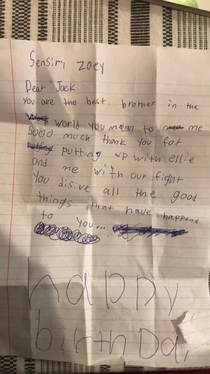 Sensiri Zoey
Dear Jack
You are the best brother in the
world you mean to me
sooo much thank you for
putting up with ellie
and me with our fight
You disive all the good
things that have happend
to you...
Happy
birthday